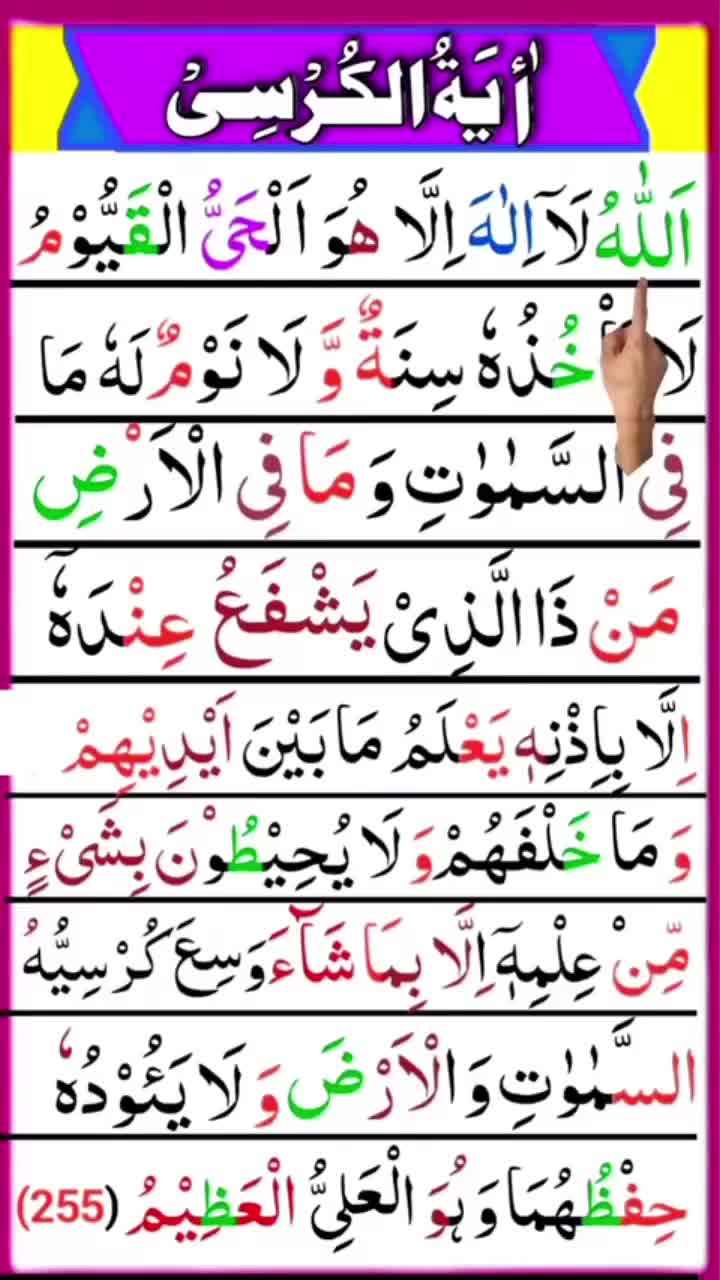 اٰيَةُ الْكُرْسِىْ
اَللّٰهُ لَاۤ اِلٰهَ اِلَّا هُوَ اَلْحَىُّ الْقَيُّوْمُ
لَا خُذُهٗ سِنَةٌ وَّ لَا نَوْمٌ لَهٗ مَا
فِى السَّمٰوٰتِ وَ مَا فِى الْاَرْضِ
مَنْ ذَا الَّذِىْ يَشْفَعُ عِنْدَهٗۤ
اِلَّا بِاِذْنِهٖ يَعْلَمُ مَا بَيْنَ اَيْدِيْهِمْ
وَ مَا خَلْفَهُمْ وَ لَا يُحِيْطُوْنَ بِشَىْءٍ
مِّنْ عِلْمِهٖۤ اِلَّا بِمَا شَآءَ وَسِعَ كُرْسِيُّهُ
السَّمٰوٰتِ وَ الْاَرْضَ وَ لَا يَئُوْدُهٗ
حِفْظُهُمَا وَ هُوَ الْعَلِىُّ الْعَظِيْمُ (255)